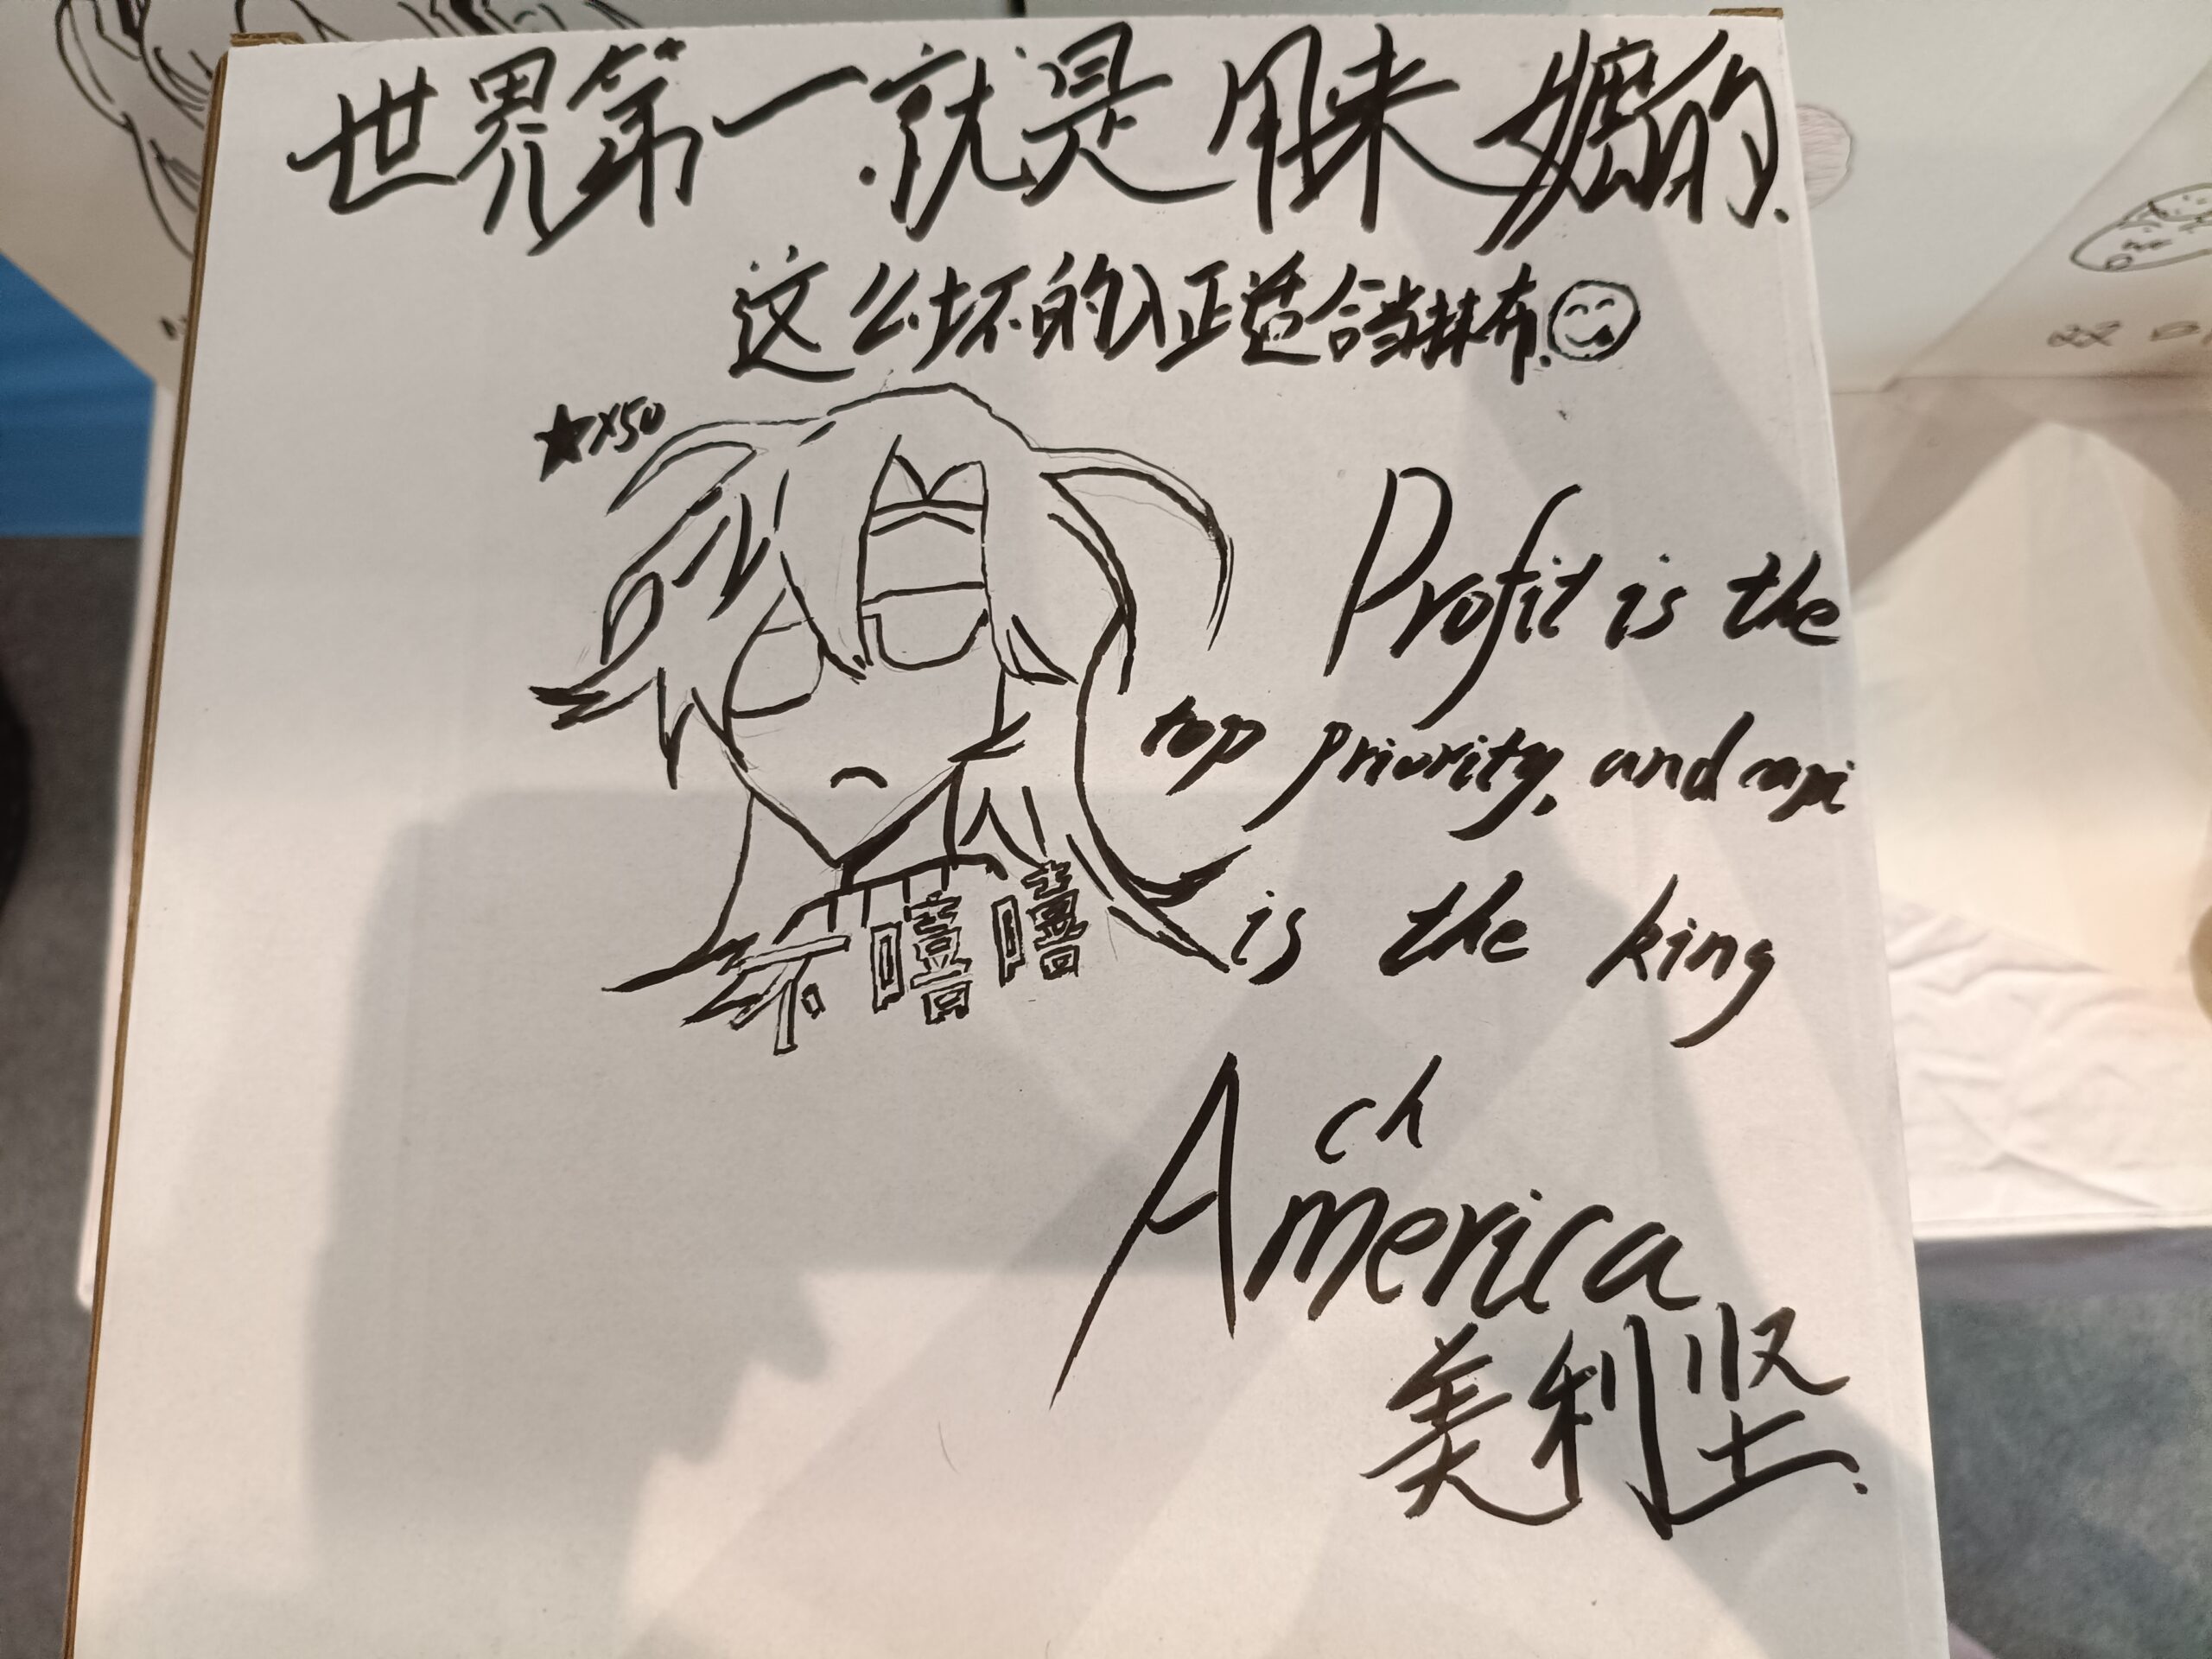 世界第一就是用来嬷的.
这么坏的人正适合当抹布.
★×50
Profit is the
top priority, and capi
is the king
不嘻嘻
ch
America
美利坚.